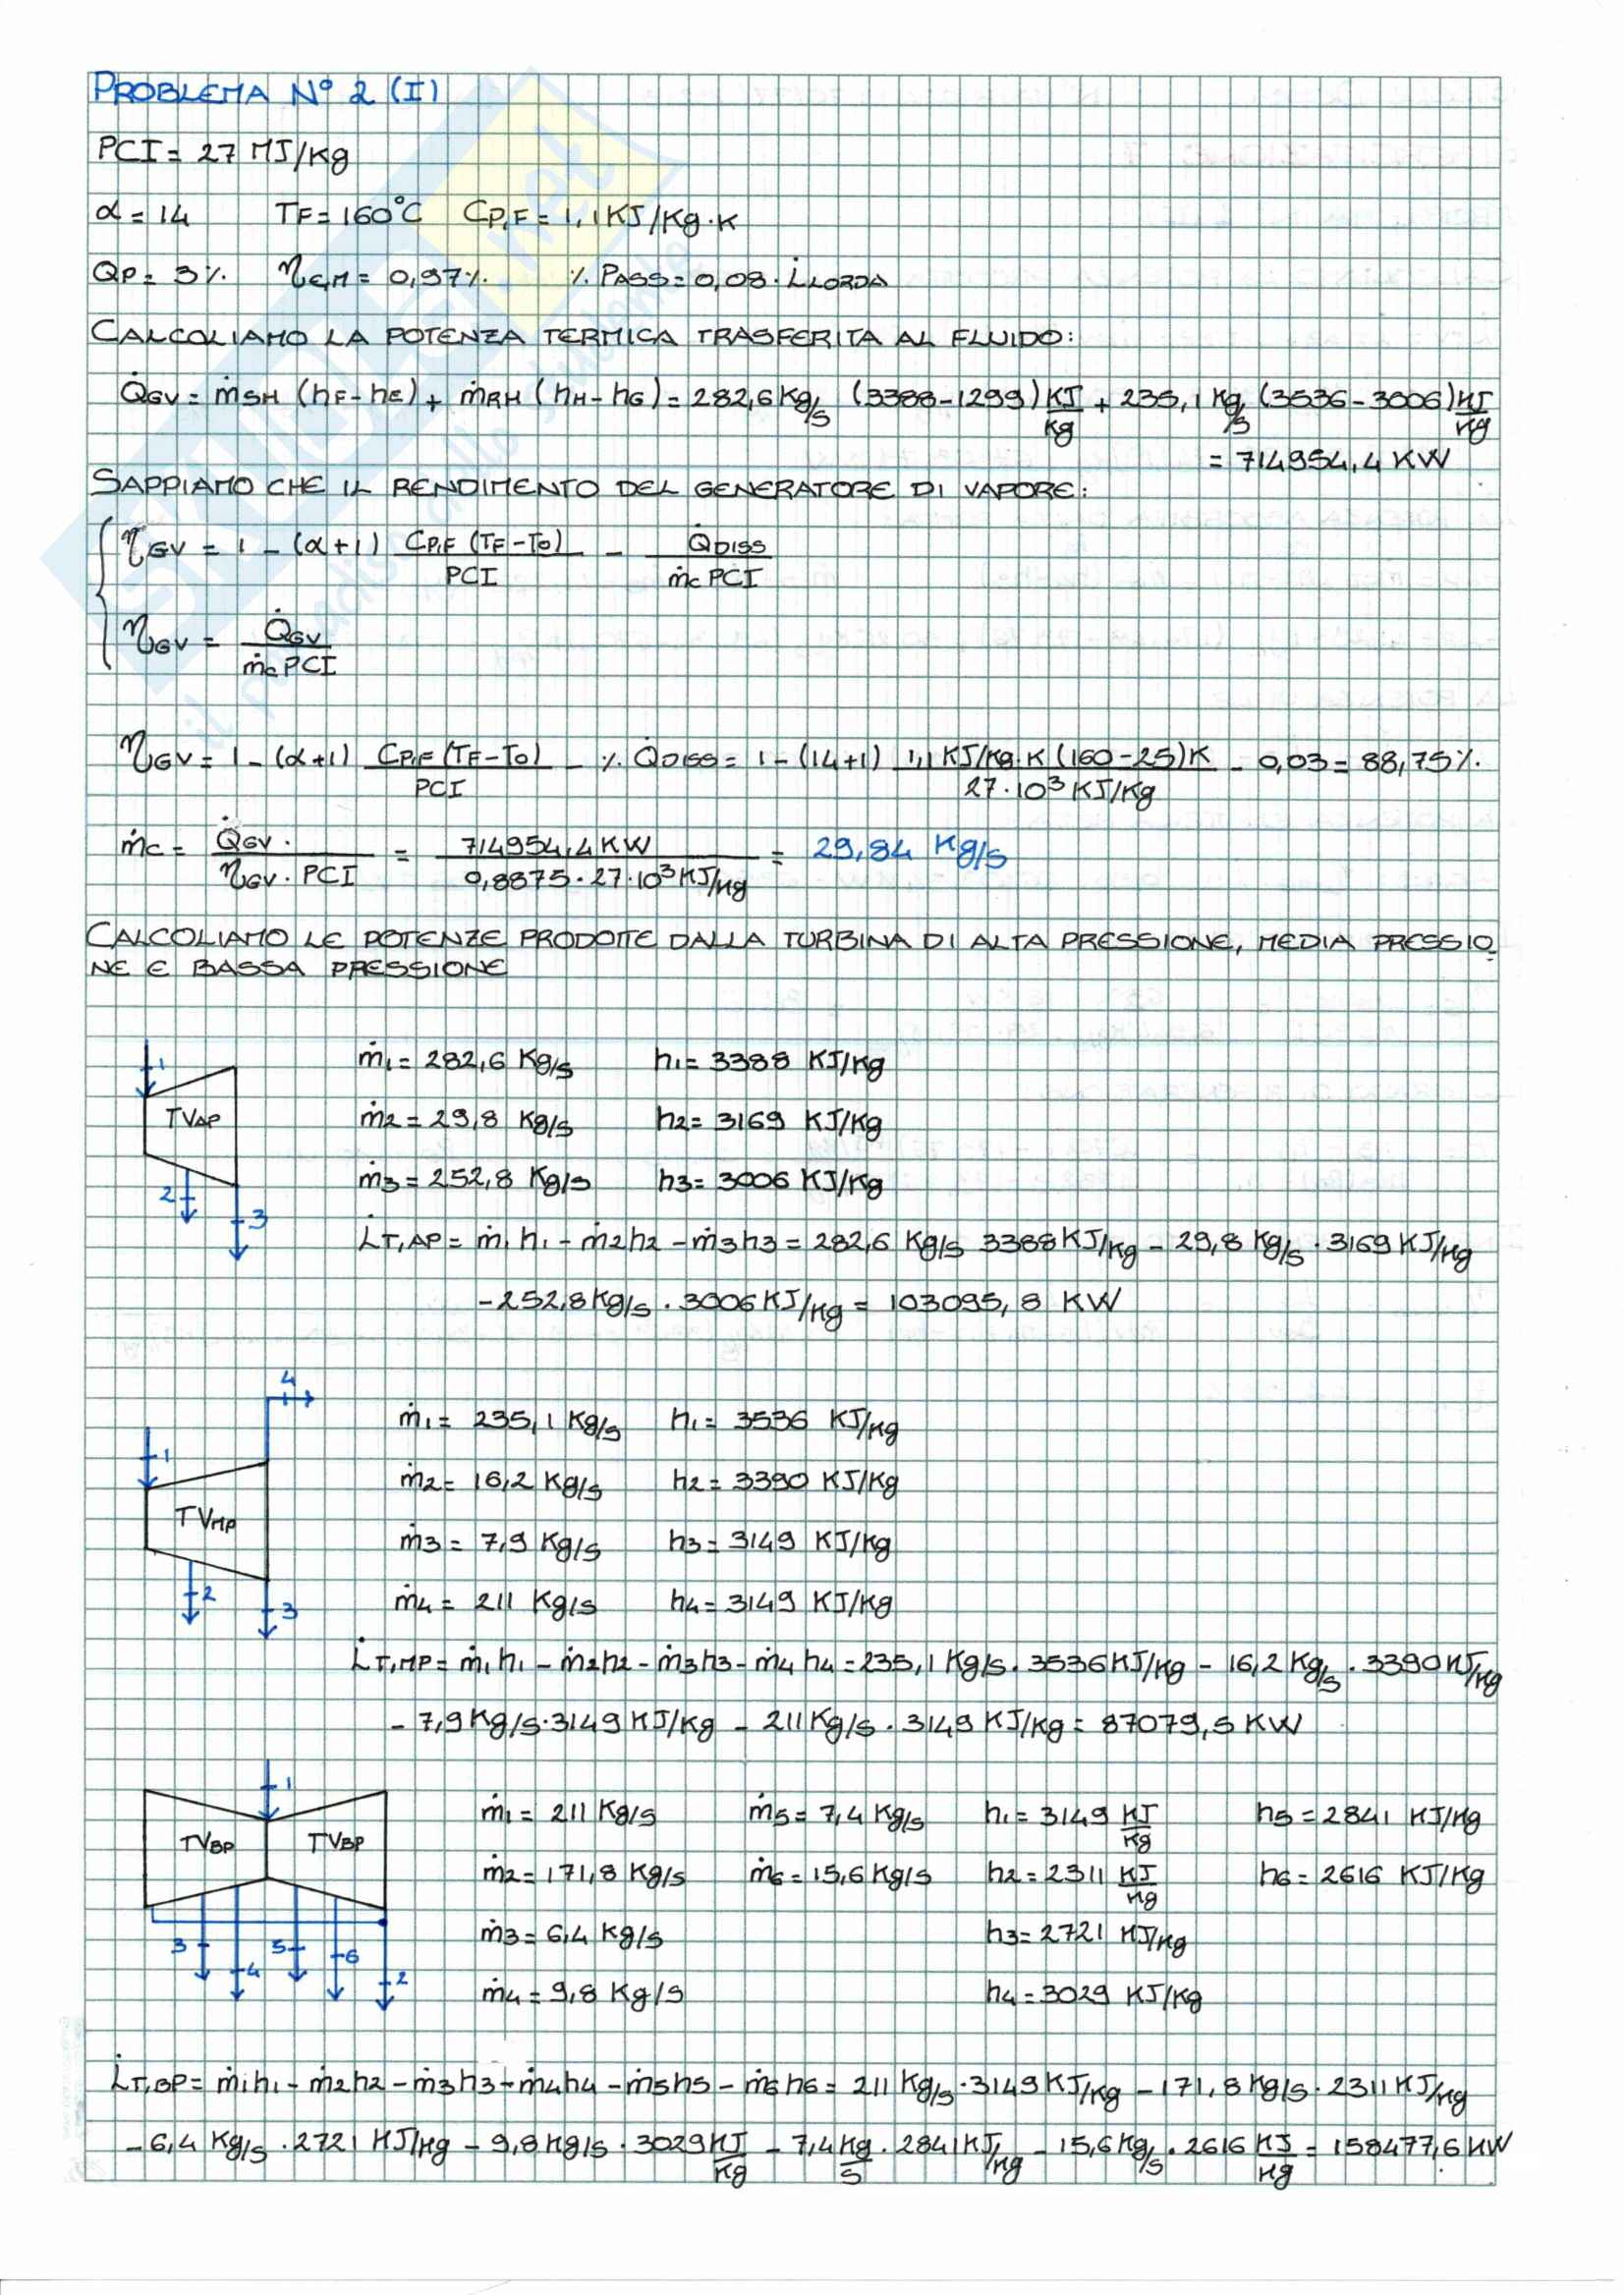 PROBLEMA N° 2 (I)
PCI = 27 MJ/Kg
α = 14 TF = 160°C CP,F = 1,1 KJ/Kg·K
QP = 3% ηE,M = 0,97% % PASS = 0,08 · L̇LORDA
CALCOLIAMO LA POTENZA TERMICA TRASFERITA AL FLUIDO:
Q̇GV = ṁSH (hF - hE) + ṁRH (hH - hG) = 282,6 Kg/s (3388 - 1299) KJ/Kg + 235,1 Kg/s (3536 - 3006) KJ/Kg
= 714954,4 KW
SAPPIAMO CHE IL RENDIMENTO DEL GENERATORE DI VAPORE:
ηGV = 1 - (α+1) CP,F (TF - T0)/PCI - Q̇DISS/ṁc PCI
ηGV = Q̇GV/ṁc PCI
ηGV = 1 - (α+1) CP,F (TF - T0)/PCI - % Q̇DISS = 1 - (14+1) 1,1 KJ/Kg·K (160-25)K/27·10³ KJ/Kg - 0,03 = 88,75%
ṁc = Q̇GV/ηGV · PCI = 714954,4 KW/0,8875 · 27·10³ KJ/Kg = 29,84 Kg/s
CALCOLIAMO LE POTENZE PRODOTTE DALLA TURBINA DI ALTA PRESSIONE, MEDIA PRESSIO
NE E BASSA PRESSIONE
1 ṁ1 = 282,6 Kg/s h1 = 3388 KJ/Kg
TVAP ṁ2 = 29,8 Kg/s h2 = 3169 KJ/Kg
2 ṁ3 = 252,8 Kg/s h3 = 3006 KJ/Kg
3 L̇T,AP = ṁ1h1 - ṁ2h2 - ṁ3h3 = 282,6 Kg/s 3388 KJ/Kg - 29,8 Kg/s · 3169 KJ/Kg
- 252,8 Kg/s · 3006 KJ/Kg = 103095,8 KW
4
1 ṁ1 = 235,1 Kg/s h1 = 3536 KJ/Kg
ṁ2 = 16,2 Kg/s h2 = 3390 KJ/Kg
TVMP ṁ3 = 7,9 Kg/s h3 = 3149 KJ/Kg
2 3 ṁ4 = 211 Kg/s h4 = 3149 KJ/Kg
L̇T,MP = ṁ1h1 - ṁ2h2 - ṁ3h3 - ṁ4h4 = 235,1 Kg/s · 3536 KJ/Kg - 16,2 Kg/s · 3390 KJ/Kg
- 7,9 Kg/s · 3149 KJ/Kg - 211 Kg/s · 3149 KJ/Kg = 87079,5 KW
1 ṁ1 = 211 Kg/s ṁ5 = 7,4 Kg/s h1 = 3149 KJ/Kg h5 = 2841 KJ/Kg
TVBP TVBP ṁ2 = 171,8 Kg/s ṁ6 = 15,6 Kg/s h2 = 2311 KJ/Kg h6 = 2616 KJ/Kg
3 5 6 ṁ3 = 6,4 Kg/s h3 = 2721 KJ/Kg
4 2 ṁ4 = 9,8 Kg/s h4 = 3029 KJ/Kg
L̇T,BP = ṁ1h1 - ṁ2h2 - ṁ3h3 - ṁ4h4 - ṁ5h5 - ṁ6h6 = 211 Kg/s · 3149 KJ/Kg - 171,8 Kg/s · 2311 KJ/Kg
- 6,4 Kg/s · 2721 KJ/Kg - 9,8 Kg/s · 3029 KJ/Kg - 7,4 Kg/s · 2841 KJ/Kg - 15,6 Kg/s · 2616 KJ/Kg = 158477,6 KW